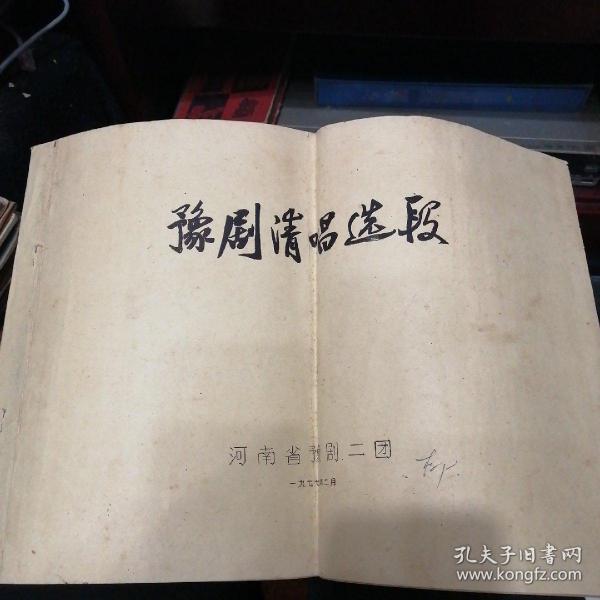 豫剧清唱选段
河南省豫剧二团
一九七七年二月
孔夫子旧书网
www.kongfz.com